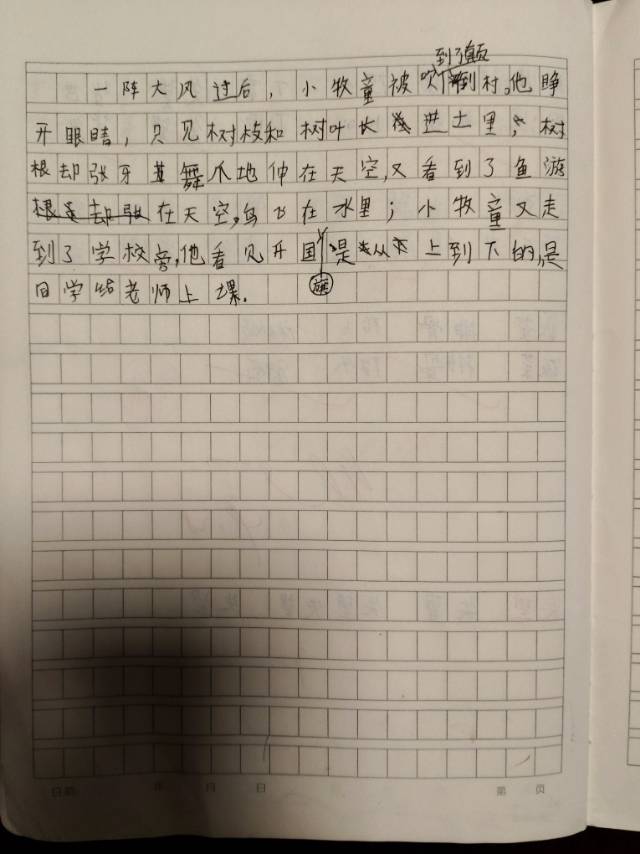 到了颠
一阵大风过后,小牧童被吹倒村。他睁
开眼睛,只见树枝和树叶长进土里,树
根却张牙舞爪地伸在天空,又看到了鱼游
根是却张在天空,鸟飞在水里;小牧童又走
到了学校旁,他看见升国是从上到下的,是
旗
同学给老师上课.
日期 年 月 日 第 页